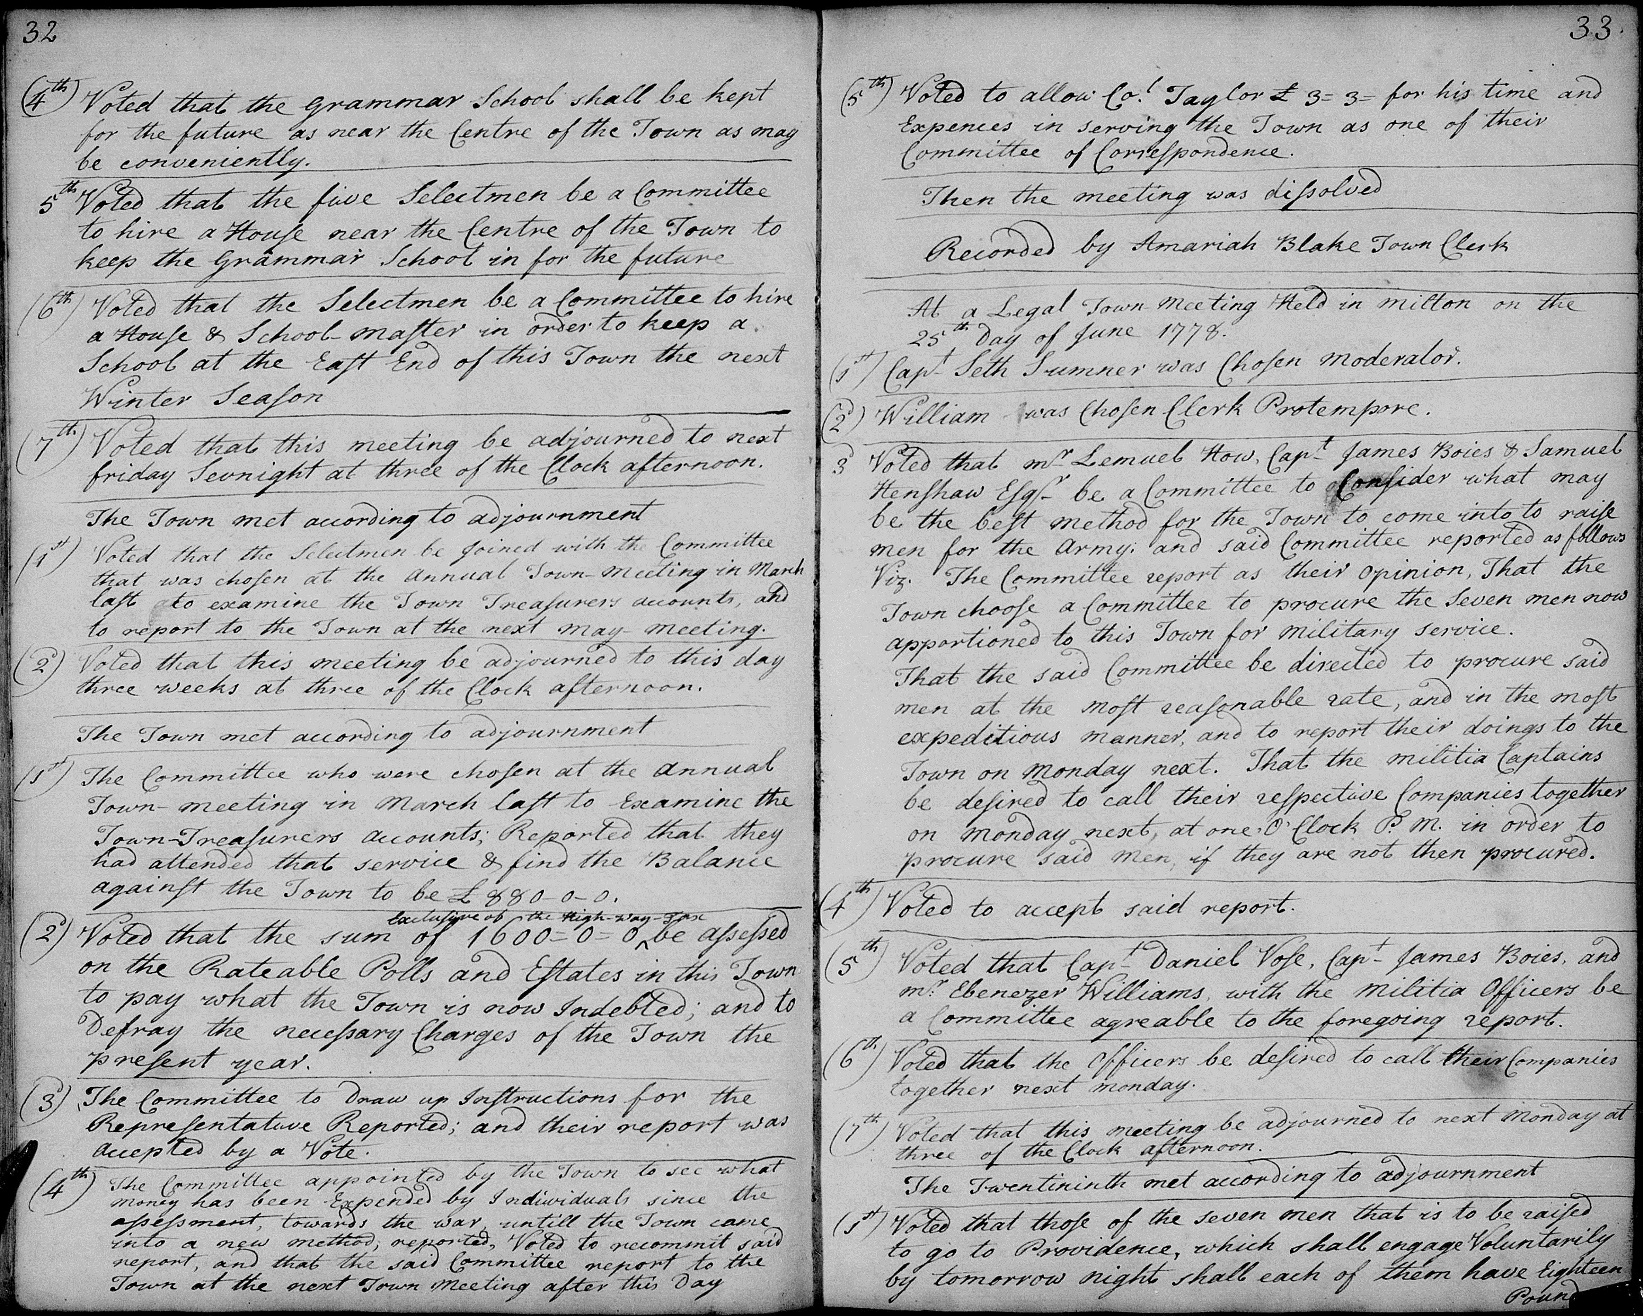 32
(4th) Voted that the Grammar School shall be kept
for the future as near the Centre of the Town as may
be conveniently.
5th Voted that the five Selectmen be a Committee
to hire a House near the Centre of the Town to
keep the Grammar School in for the future
(6th) Voted that the Selectmen be a Committee to hire
a House & School-master in order to keep a
School at the East End of this Town the next
Winter Season
(7th) Voted that this meeting be adjourned to next
friday Sevnight at three of the Clock afternoon.
The Town met according to adjournment
(1st) Voted that the Selectmen be joined with the Committee
that was chosen at the annual Town-meeting in March
last to examine the Town Treasurers accounts, and
to report to the Town at the next may-meeting.
(2d) Voted that this meeting be adjourned to this day
three weeks at three of the Clock afternoon.
The Town met according to adjournment
(1st) The Committee who were chosen at the annual
Town-meeting in March last to Examine the
Town-Treasurers accounts; Reported that they
had attended that service & find the Balance
against the Town to be £880-0-0.
exclusive of the High-way-Tax
(2d) Voted that the sum of 1600-0-0 ‸ be assessed
on the Rateable Polls and Estates in this Town
to pay what the Town is now Indebted; and to
Defray the necessary Charges of the Town the
present year.
(3d) The Committee to Draw up Instructions for the
Representative Reported; and their report was
accepted by a Vote.
(4th) The Committee appointed by the Town to see what
money has been Expended by Individuals since the
assessment, towards the war, untill the Town came
into a new method; reported, Voted to recommit said
report, and that the said Committee report to the
Town at the next Town meeting after this Day
33
(5th) Voted to allow Col Taylor £ 3=3= for his time and
Expences in serving the Town as one of their
Committee of Correspondence.
Then the meeting was dissolved
Recorded by Amariah Blake Town Clerk
At a Legal Town Meeting Held in milton on the
25th Day of June 1778.
(1st) Capt Seth Sumner was Chosen moderator.
(2d) William was Chosen Clerk Protempore.
3 Voted that mr Lemuel How, Capt James Boies & Samuel
Henshaw Esqr be a Committee to Consider what may
be the best method for the Town to come into to raise
men for the Army; and said Committee reported as follows
Viz. The Committee report as their opinion, That the
Town choose a Committee to procure the Seven men now
apportioned to this Town for military service.
That the said Committee be directed to procure said
men at the most reasonable rate, and in the most
expeditious manner, and to report their doings to the
Town on monday next. That the militia Captains
be desired to call their respective Companies together
on monday next, at one O'Clock P. M. in order to
procure said men, if they are not then procured.
(4th) Voted to accept said report.
(5th) Voted that Capt Daniel Vose, Capt James Boies, and
mr Ebenezer Williams, with the militia Officers be
a Committee agreable to the foregoing report.
(6th) Voted that the Officers be desired to call their Companies
together next monday.
(7th) Voted that this meeting be adjourned to next monday at
three of the Clock afternoon.
The Twentininth met according to adjournment
(1st) Voted that those of the seven men that is to be raised
to go to Providence, which shall engage Voluntarily
by tomorrow night shall each of them have Eighteen
Pound